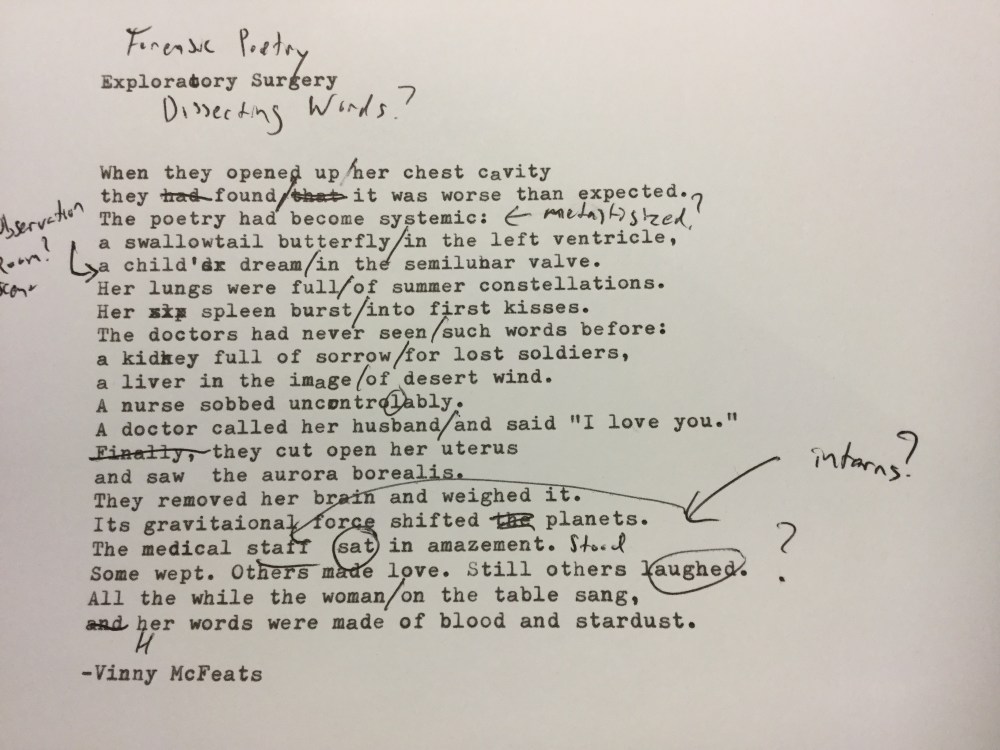 Forensic Poetry
Exploratory Surgery
Dissecting Words?
When they opened up/her chest cavity
they had found/that it was worse than expected.
The poetry had become systemic: ← metastisized?
Observation
Room?
a swallowtail butterfly/in the left ventricle,
a child's dream/in the semilunar valve.
Her lungs were full/of summer constellations.
Her six spleen burst/into first kisses.
The doctors had never seen/such words before:
a kidney full of sorrow/for lost soldiers,
a liver in the image/of desert wind.
A nurse sobbed uncontrolably.
A doctor called her husband/and said "I love you."
Finally, they cut open her uterus
and saw the aurora borealis.
interns?
They removed her brain and weighed it.
Its gravitaional force shifted the planets.
The medical staff sat in amazement. Stood
Some wept. Others made love. Still others laughed. ?
All the while the woman/on the table sang,
and her words were made of blood and stardust.
H
-Vinny McFeats